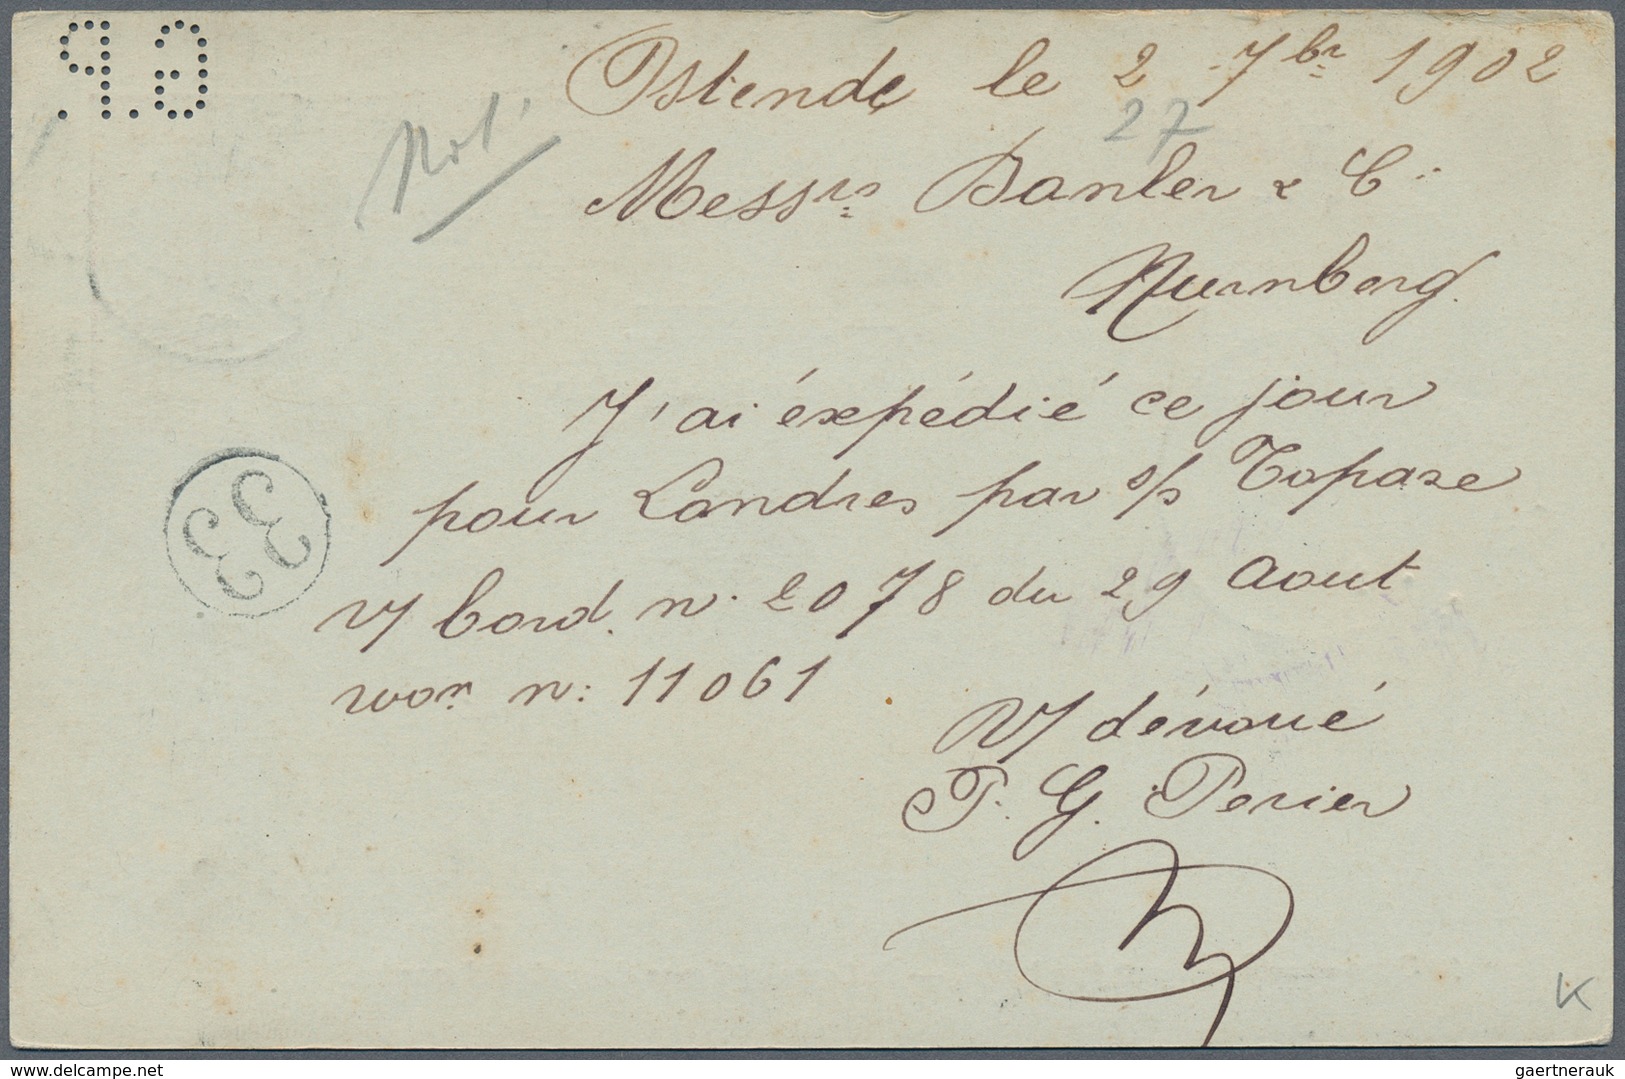 G.P.
Ostende le 2 7br 1902
27
Not.
Messrs Banler & C..
Nurnberg.
J'ai éxpédié ce jour
pour Londres par s/s Topaze
V/ bord. n. 2078 du 29 Aout
won n: 11061
33
V/ dévoué
P. G. Perier
K
www.delcampe.net
gaertnerauk